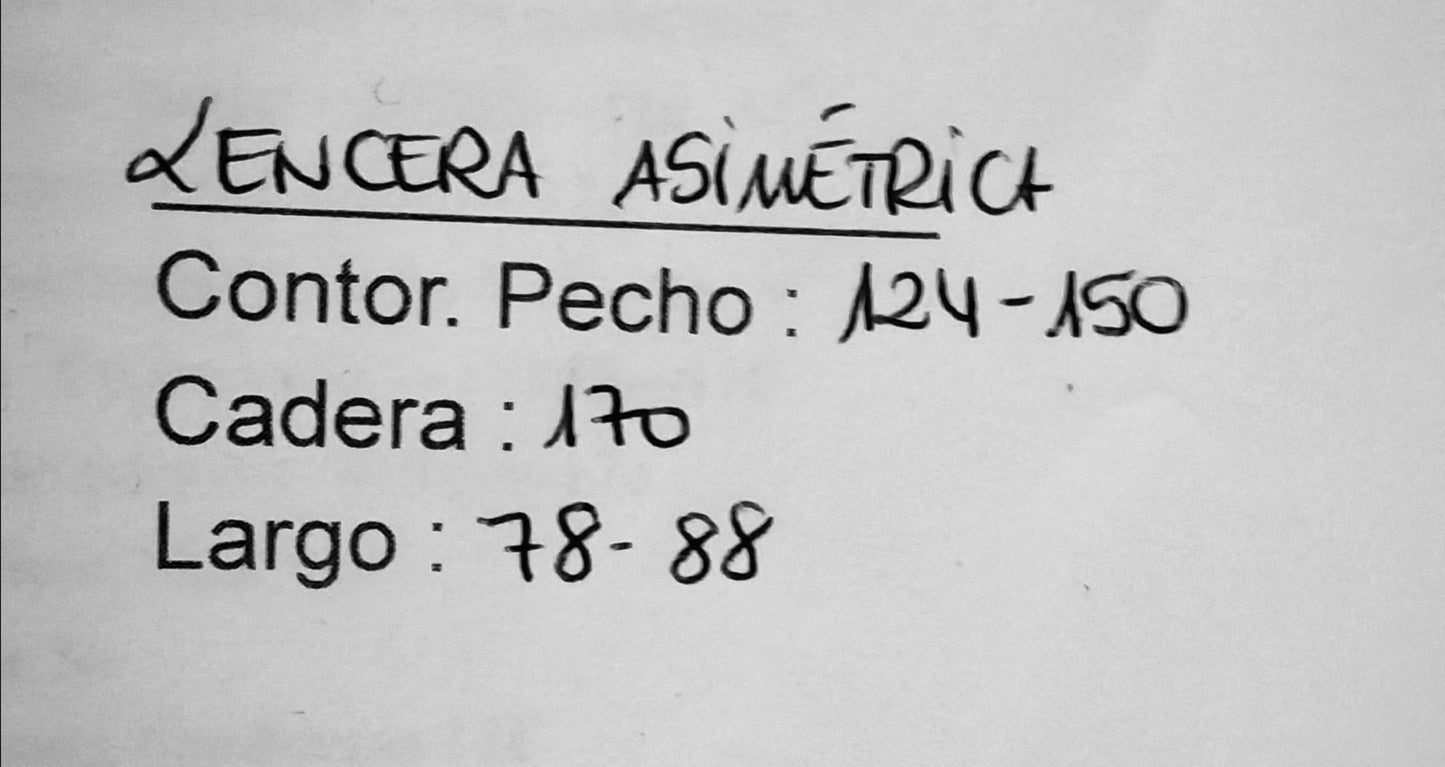 LENCERA ASIMÉTRICA
Contor. Pecho : 124-150
Cadera : 170
Largo : 78-88